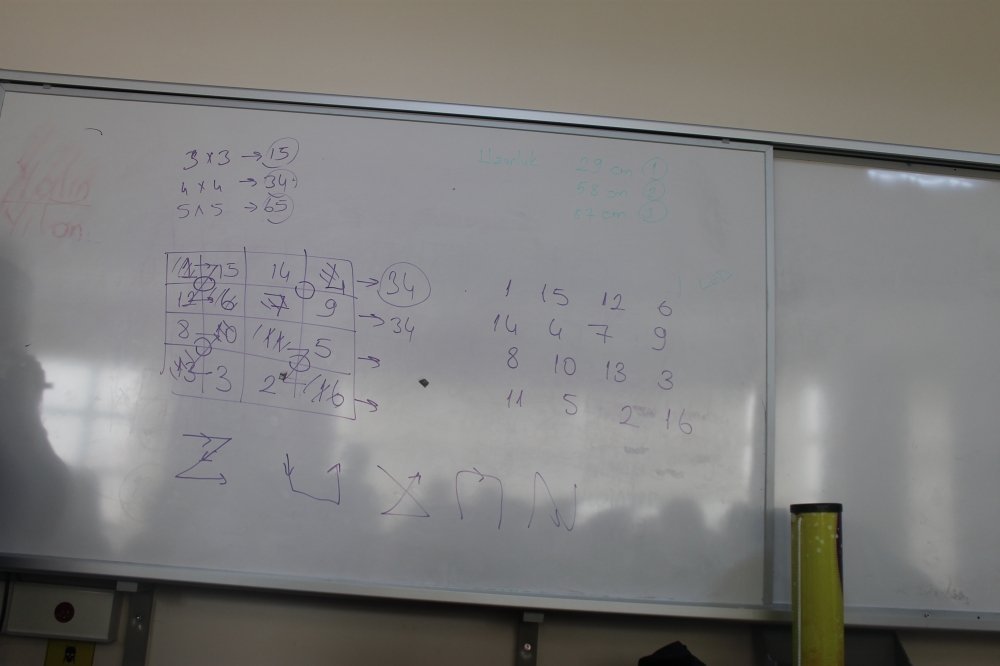 3 x 3 → 15
4 x 4 → 34
5 x 5 → 65
29 cm 1
58 cm 2
87 cm 3
1 15 14 4 → 34
12 6 7 9 → 34
8 10 11 5 →
13 3 2 16 →
1 15 12 6
14 4 7 9
8 10 13 3
11 5 2 16
Z U X N